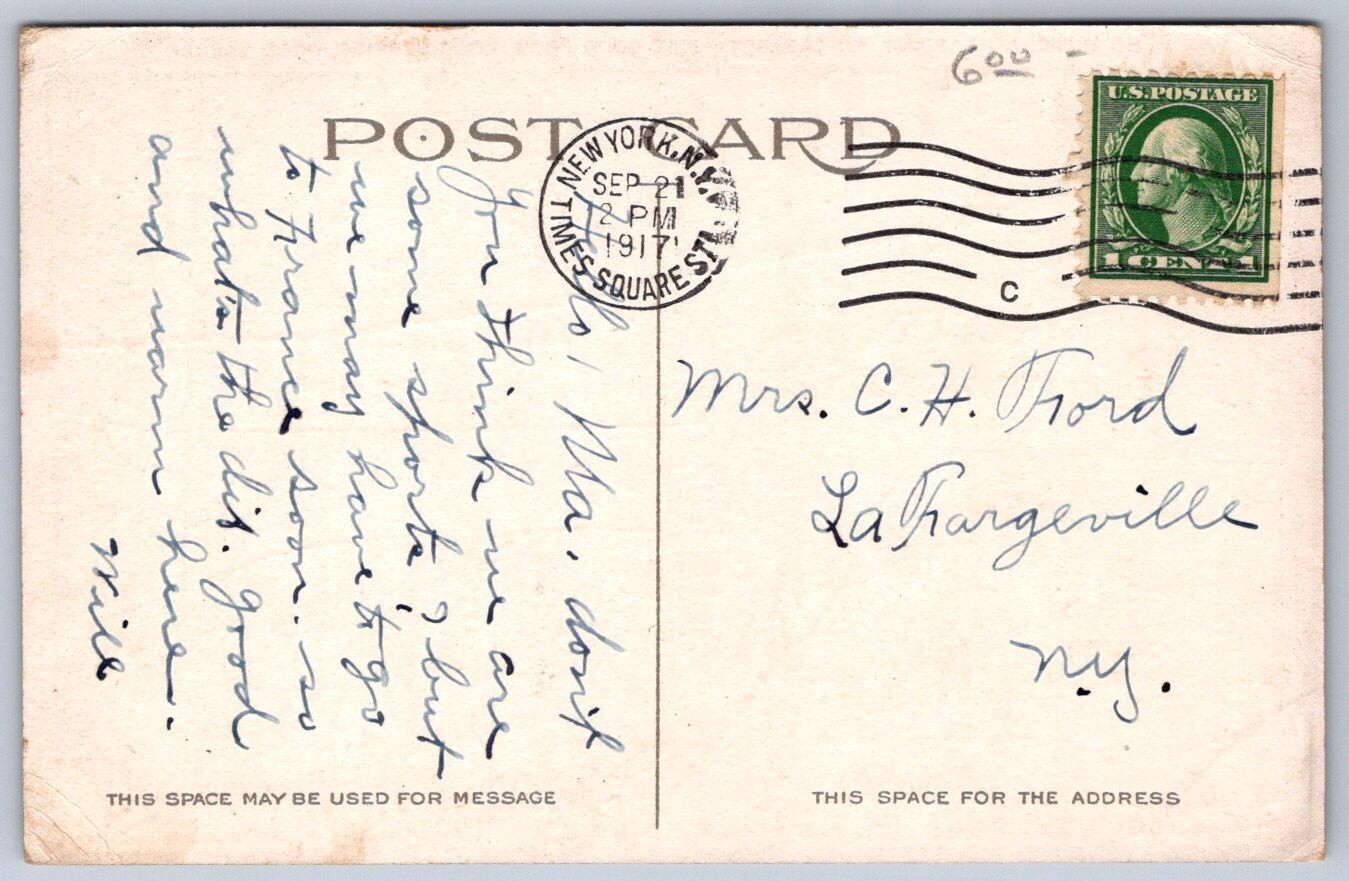 6 00 -
POST CARD
U.S. POSTAGE
1 CENT 1
NEW YORK, N.Y.
SEP 21
2 PM
1917
TIMES SQUARE STA.
C
Hello, Ma. don't
you think we are
some sports, but
we may have to go
to France soon. so
what's the dif. good
and warm here.
Will
Mrs. C. H. Ford
La Fargeville
N.Y.
THIS SPACE MAY BE USED FOR MESSAGE
THIS SPACE FOR THE ADDRESS